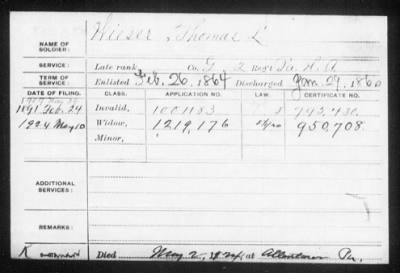 Wieser, Thomas L
NAME OF SOLDIER:
SERVICE: Late rank, Co. G, 2 Reg't Pa. H. A
TERM OF SERVICE: Enlisted Feb. 26, 1864 Discharged Jan. 29, 1866
DATE OF FILING. CLASS. APPLICATION NO. LAW. CERTIFICATE NO.
1891 Feb. 24 Invalid, 1001183 792,430
1924 May 10 Widow, 1219,176 950,708
Minor,
ADDITIONAL SERVICES:
REMARKS:
Died May 2, 1924, at Allentown Pa.